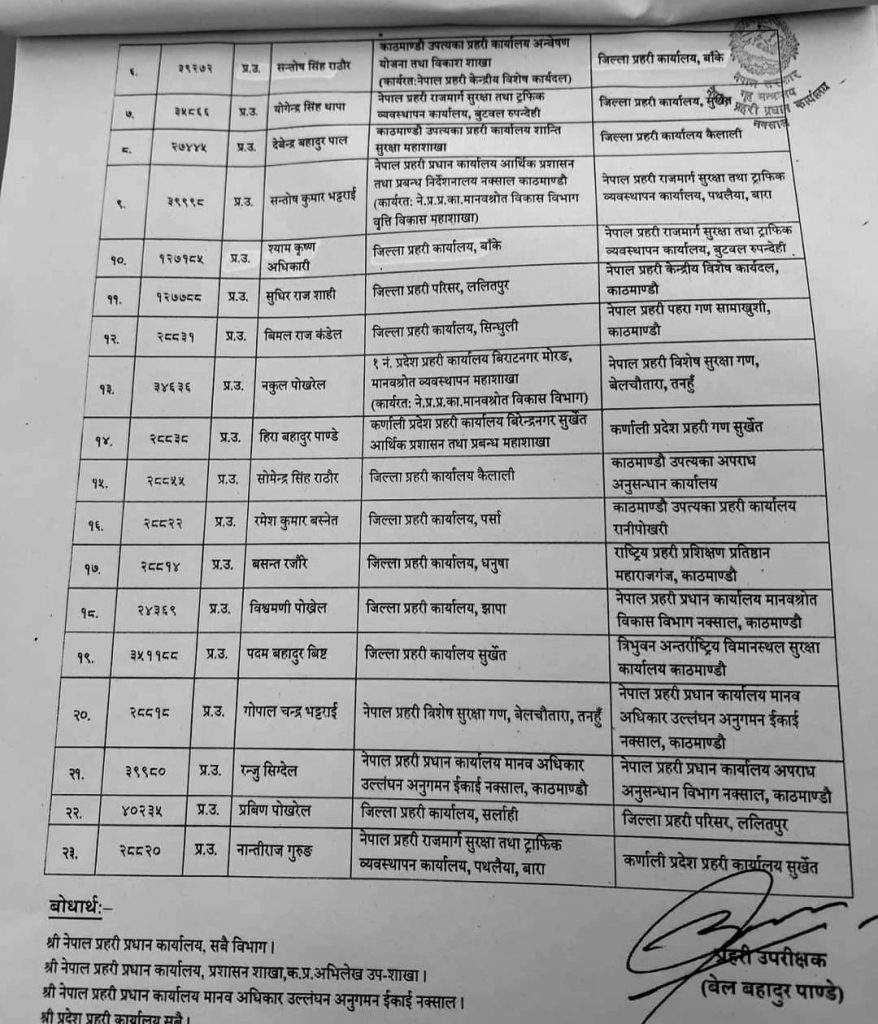 नेपाल सरकार
गृह मन्त्रालय
प्रहरी प्रधान कार्यालय
नक्साल
६. ३९२७२ प्र.उ. सन्तोष सिंह राठौर काठमाण्डौ उपत्यका प्रहरी कार्यालय अन्वेषण जिल्ला प्रहरी कार्यालय, बाँके
योजना तथा विकाश शाखा
(कार्यरत:नेपाल प्रहरी केन्द्रीय विशेष कार्यदल)
७. ३५८६६ प्र.उ. योगेन्द्र सिंह थापा नेपाल प्रहरी राजमार्ग सुरक्षा तथा ट्रफिक जिल्ला प्रहरी कार्यालय, सुर्खेत
व्यवस्थापन कार्यालय, बुटवल रुपन्देही
८. २७४४५ प्र.उ. देबेन्द्र बहादुर पाल काठमाण्डौ उपत्यका प्रहरी कार्यालय शान्ति जिल्ला प्रहरी कार्यालय कैलाली
सुरक्षा महाशाखा
९. ३९९९८ प्र.उ. सन्तोष कुमार भट्टराई नेपाल प्रहरी प्रधान कार्यालय आर्थिक प्रशासन नेपाल प्रहरी राजमार्ग सुरक्षा तथा ट्राफिक
तथा प्रबन्ध निर्देशनालय नक्साल काठमाण्डौ व्यवस्थापन कार्यालय, पथलैया, बारा
(कार्यरत: ने.प्र.प्र.का.मानवश्रोत विकास विभाग
वृत्ति विकास महाशाखा)
१०. १२७१८५ प्र.उ. श्याम कृष्ण जिल्ला प्रहरी कार्यालय, बाँके नेपाल प्रहरी राजमार्ग सुरक्षा तथा ट्राफिक
अधिकारी व्यवस्थापन कार्यालय, बुटवल रुपन्देही
११. १२७७८८ प्र.उ. सुधिर राज शाही जिल्ला प्रहरी परिसर, ललितपुर नेपाल प्रहरी केन्द्रीय विशेष कार्यदल,
काठमाण्डौ
१२. २८८३१ प्र.उ. बिमल राज कंडेल जिल्ला प्रहरी कार्यालय, सिन्धुली नेपाल प्रहरी पहरा गण सामाखुशी,
काठमाण्डौ
१३. ३४६३६ प्र.उ. नकुल पोखरेल १ नं. प्रदेश प्रहरी कार्यालय बिराटनगर मोरङ, नेपाल प्रहरी विशेष सुरक्षा गण,
मानवश्रोत व्यवस्थापन महाशाखा बेलचौतारा, तनहुँ
(कार्यरत: ने.प्र.प्र.का.मानवश्रोत विकास विभाग)
१४. २८८३८ प्र.उ. हिरा बहादुर पाण्डे कर्णाली प्रदेश प्रहरी कार्यालय बिरेन्द्रनगर सुर्खेत कर्णाली प्रदेश प्रहरी गण सुर्खेत
आर्थिक प्रशासन तथा प्रबन्ध महाशाखा
१५. २८८५५ प्र.उ. सोमेन्द्र सिंह राठौर जिल्ला प्रहरी कार्यालय कैलाली काठमाण्डौ उपत्यका अपराध
अनुसन्धान कार्यालय
१६. २८८२२ प्र.उ. रमेश कुमार बस्नेत जिल्ला प्रहरी कार्यालय, पर्सा काठमाण्डौ उपत्यका प्रहरी कार्यालय
रानीपोखरी
१७. २८८१४ प्र.उ. बसन्त रजौरे जिल्ला प्रहरी कार्यालय, धनुषा राष्ट्रिय प्रहरी प्रशिक्षण प्रतिष्ठान
महाराजगंज, काठमाण्डौ
१८. २४३६९ प्र.उ. विश्वमणी पोख्रेल जिल्ला प्रहरी कार्यालय, झापा नेपाल प्रहरी प्रधान कार्यालय मानवश्रोत
विकास विभाग नक्साल, काठमाण्डौ
१९. ३५११८८ प्र.उ. पदम बहादुर बिष्ट जिल्ला प्रहरी कार्यालय सुर्खेत त्रिभुवन अन्तर्राष्ट्रिय विमानस्थल सुरक्षा
कार्यालय काठमाण्डौ
२०. २८८१८ प्र.उ. गोपाल चन्द्र भट्टराई नेपाल प्रहरी विशेष सुरक्षा गण, बेलचौतारा, तनहुँ नेपाल प्रहरी प्रधान कार्यालय मानव
अधिकार उल्लंघन अनुगमन ईकाई
नक्साल, काठमाण्डौ
२१. ३९९८० प्र.उ. रन्जु सिग्देल नेपाल प्रहरी प्रधान कार्यालय मानव अधिकार नेपाल प्रहरी प्रधान कार्यालय अपराध
उल्लंघन अनुगमन ईकाई नक्साल, काठमाण्डौ अनुसन्धान विभाग नक्साल, काठमाण्डौ
२२. ४०२३५ प्र.उ. प्रबिण पोखरेल जिल्ला प्रहरी कार्यालय, सर्लाही जिल्ला प्रहरी परिसर, ललितपुर
२३. २८८२० प्र.उ. नान्तीराज गुरुङ नेपाल प्रहरी राजमार्ग सुरक्षा तथा ट्राफिक कर्णाली प्रदेश प्रहरी कार्यालय सुर्खेत
व्यवस्थापन कार्यालय, पथलैया, बारा
बोधार्थ:–
श्री नेपाल प्रहरी प्रधान कार्यालय, सबै विभाग।
श्री नेपाल प्रहरी प्रधान कार्यालय, प्रशासन शाखा,क.प्र.अभिलेख उप-शाखा।
श्री नेपाल प्रहरी प्रधान कार्यालय मानव अधिकार उल्लंघन अनुगमन ईकाई नक्साल।
श्री प्रदेश प्रहरी कार्यालय सबै।
प्रहरी उपरीक्षक
(बेल बहादुर पाण्डे)